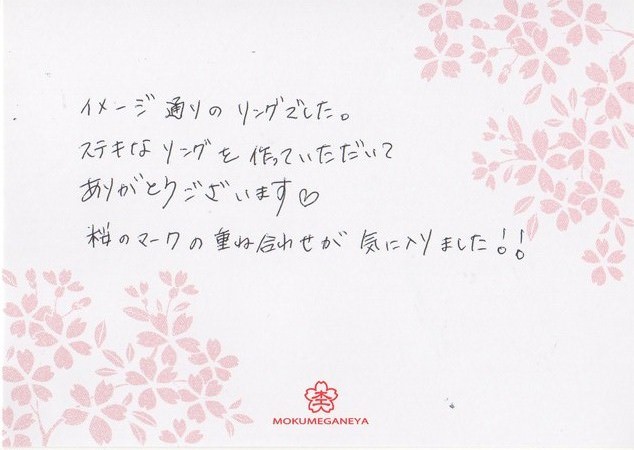 イメージ通りのリングでした。
ステキなリングを作っていただいて
ありがとうございます♡
桜のマークの重ね合わせが気に入りました!!
杢
MOKUMEGANEYA